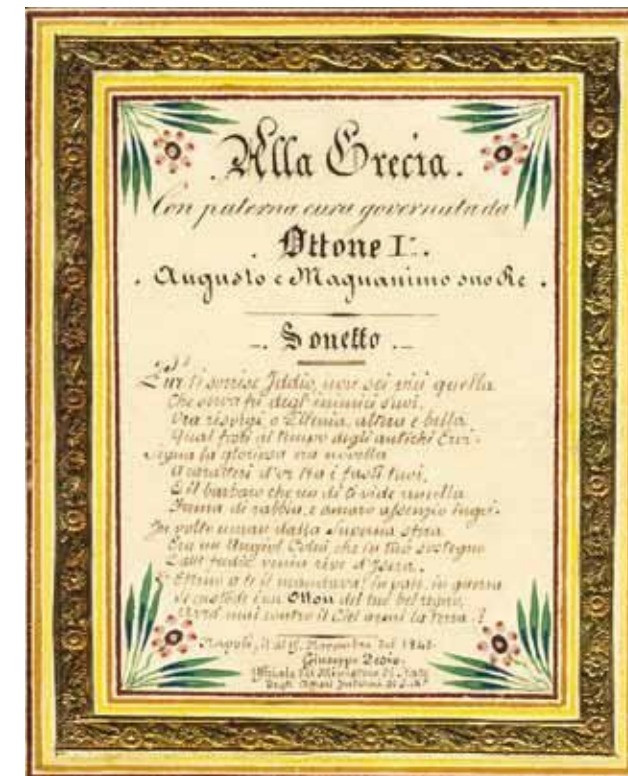 . Alla Grecia .
Con paterna cura governata da
. Ottone I.
. Augusto e Magnanimo suo Re .
Sonetto
Pur ti sorrise Iddio, non sei più quella
Che serva fu degl'inimici suoi,
Ora risorgi, o Ellenia, altera e bella
Qual fosti al tempo degli antichi Eroi.
Segna la gloriosa era novella
A caratteri d'or tra i fasti tuoi,
E il barbaro che un dì ti vide ancella
Frema di rabbia, e amaro assenzio ingoi.
In volto uman dalla Superna sfera
Era un Angiol Colui, che in tuo sostegno
rive d'Isera.
Eterno a te il mandava! in pace, in guerra
Se custode è un Otton del tuo bel regno,
mai contro il Ciel armi la terra?
Napoli, il dì 15. Novembre del 1842.
Giuseppe
Ufficiale del Ministero di Stato
Degli Affari Interni di